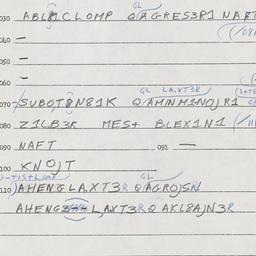 030 ABLOLCLOMP QAGRES3R1 NAFT
040 —
050 —
060 —
GL LA.XT3R
070 SUBOTON81K QAMINM1NOJR1
080 Z1LB3R MES+ BLEX1N1
090 NAFT 091 —
100 KNOJT
GL
110 AHENGLA.XT3R QAGROJSN
AHENG LA.XT3R Q AKL8AJN3R